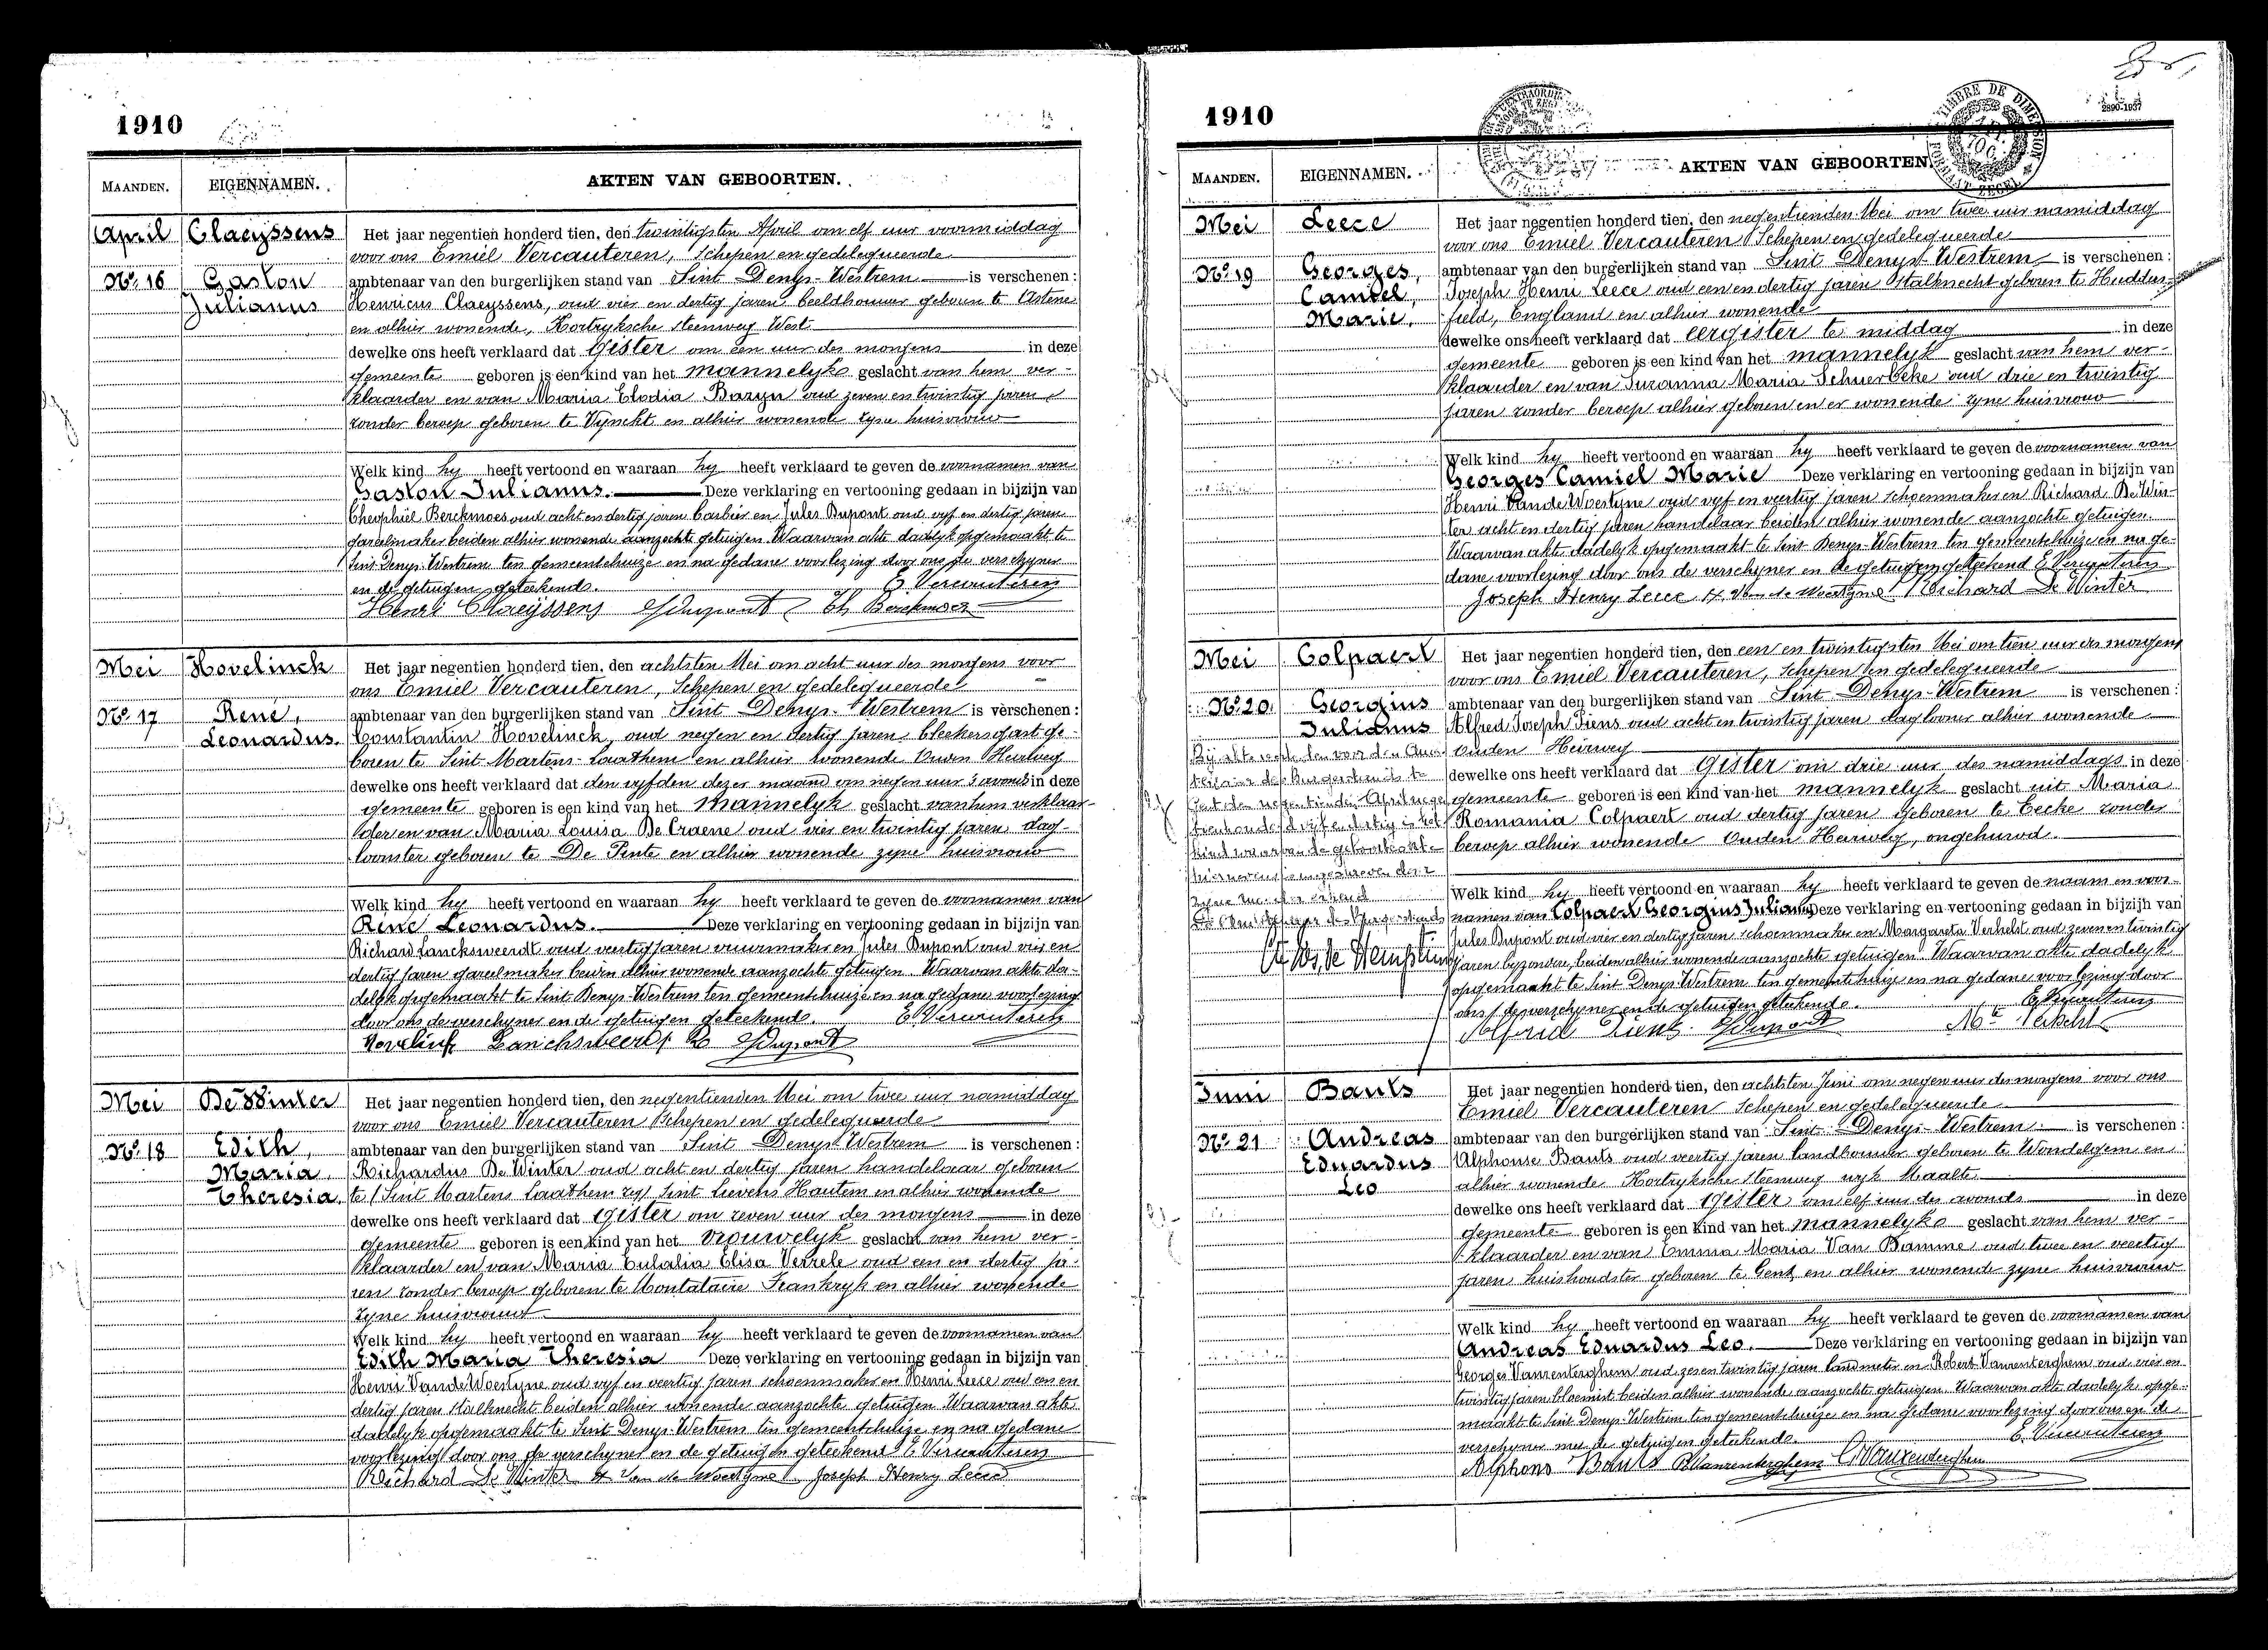 1910
MAANDEN. EIGENNAMEN. AKTEN VAN GEBOORTEN.
April
Claeyssens
No. 16
Gaston
Julianus
Het jaar negentien honderd tien, den twintigsten April om elf uur voormiddag
voor ons Emiel Vercauteren, Schepen en gedelegueerde
ambtenaar van den burgerlijken stand van Sint Denys-Westrem is verschenen:
Henricus Claeyssens, oud vier en dertig jaren beeldhouwer geboren te Astene
en alhier wonende, Kortryksche steenweg West
dewelke ons heeft verklaard dat gister om een uur des morgens in deze
gemeente geboren is een kind van het mannelyk geslacht van hem ver-
klaarder en van Maria Elodia Baryn oud zeven en twintig jaren
zonder beroep geboren te Vynckt en alhier wonende zyne huisvrouw
Welk kind hy heeft vertoond en waaraan hy heeft verklaard te geven de voornamen van
Gaston Julianus. Deze verklaring en vertooning gedaan in bijzijn van
Theophiel Berckmoes oud acht en dertig jaren barbier en Jules Dupont oud vyf en dertig jaren
gareelmaker beiden alhier wonende aanzochte getuigen. Waarvan akte dadelyk opgemaakt te
Sint Denys-Westrem ten gemeentehuize en na gedane voorlezing door ons de verschyner
en de getuigen geteekend. E. Vercauteren
Henri Claeyssens J Dupont Th Berckmoes
Mei
Hovelinck
No. 17
René,
Leonardus.
Het jaar negentien honderd tien, den achtsten Mei om acht uur des morgens voor
ons Emiel Vercauteren, Schepen en gedelegueerde
ambtenaar van den burgerlijken stand van Sint Denys-Westrem is verschenen:
Constantin Hovelinck, oud negen en dertig jaren, bleekersgast ge-
boren te Sint Martens-Laathem en alhier wonende Ouden Heirweg
dewelke ons heeft verklaard dat den vyfden dezer maand om negen uur 's avonds in deze
gemeente geboren is een kind van het mannelyk geslacht van hem verklaar-
der en van Maria Louisa De Craene oud vier en twintig jaren dag-
loonster geboren te De Pinte en alhier wonende zyne huisvrouw
Welk kind hy heeft vertoond en waaraan hy heeft verklaard te geven de voornamen van
René Leonardus. Deze verklaring en vertooning gedaan in bijzijn van
Richard Lancksweerdt oud veertig jaren vuurmaker en Jules Dupont oud vier en
dertig jaren gareelmaker beiden alhier wonende aanzochte getuigen. Waarvan akte da-
delyk opgemaakt te Sint Denys-Westrem ten gemeentehuize en na gedane voorlezing
door ons de verschyner en de getuigen geteekend. E. Vercauteren
Hovelinck Lanchsweerdt R J Dupont
Mei
De Winter
No. 18
Edith,
Maria,
Theresia,
Het jaar negentien honderd tien, den negentienden Mei om twee uur namiddag
voor ons Emiel Vercauteren Schepen en gedelegueerde
ambtenaar van den burgerlijken stand van Sint Denys-Westrem is verschenen:
Richardus De Winter oud acht en dertig jaren handelaar geboren
te Sint Martens Laathem zij Sint Lievens Hautem en alhier wonende
dewelke ons heeft verklaard dat gister om zeven uur des morgens in deze
gemeente geboren is een kind van het vrouwelyk geslacht van hem ver-
klaarder en van Maria Eulalia Elisa Verrele oud een en dertig ja-
ren zonder beroep geboren te Montataire Frankryk en alhier wonende
zyne huisvrouw
Welk kind hy heeft vertoond en waaraan hy heeft verklaard te geven de voornamen van
Edith Maria Theresia Deze verklaring en vertooning gedaan in bijzijn van
Henri Van de Woestyne oud vyf en veertig jaren schoenmaker en Henri Leece oud een en
dertig jaren stalknecht beiden alhier wonende aanzochte getuigen Waarvan akte
dadelyk opgemaakt te Sint Denys-Westrem ten gemeentehuize en na gedane
voorlezing door ons de verschyner en de getuigen geteekend E Vercauteren
Richard De Winter H Van de Woestyne Joseph Henry Leece
1910
TIMBRE DE DIMENSION
2890-1937
MAANDEN. EIGENNAMEN. AKTEN VAN GEBOORTEN.
Mei
Leece
No. 19
Georges,
Camiel,
Marie,
Het jaar negentien honderd tien, den negentienden Mei om twee uur namiddag
voor ons Emiel Vercauteren Schepen en gedelegueerde
ambtenaar van den burgerlijken stand van Sint Denys-Westrem is verschenen:
Joseph Henri Leece oud een en dertig jaren Stalknecht geboren te Hudders-
field, England en alhier wonende
dewelke ons heeft verklaard dat eergister te middag in deze
gemeente geboren is een kind van het mannelyk geslacht van hem ver-
klaarder en van Suzanna Maria Schuerbeke oud drie en twintig
jaren zonder beroep alhier geboren en er wonende zyne huisvrouw
Welk kind hy heeft vertoond en waaraan hy heeft verklaard te geven de voornamen van
Georges Camiel Marie Deze verklaring en vertooning gedaan in bijzijn van
Henri Van de Woestyne oud vyf en veertig jaren schoenmaker en Richard De Win-
ter acht en dertig jaren handelaar beiden alhier wonende aanzochte getuigen.
Waarvan akte dadelyk opgemaakt te Sint Denys-Westrem ten gemeentehuize en na ge-
dane voorlezing door ons de verschyner en de getuigen geteekend E Vercauteren
Joseph Henry Leece H. Van de Woestyne Richard De Winter
Mei
Colpaert
No. 20.
Georgius
Julianus
Het jaar negentien honderd tien, den een en twintigsten Mei om tien uur des morgens
voor ons Emiel Vercauteren, Schepen en gedelegueerde
ambtenaar van den burgerlijken stand van Sint Denys-Westrem is verschenen:
Alfred Joseph Tiens oud acht en twintig jaren dagloner alhier wonende
Ouden Heirweg
dewelke ons heeft verklaard dat gister om drie uur des namiddags in deze
gemeente geboren is een kind van het mannelyk geslacht uit Maria
Romania Colpaert oud dertig jaren geboren te Eecke zonder
beroep alhier wonende Ouden Heirweg, ongehuwd.
Welk kind hy heeft vertoond en waaraan hy heeft verklaard te geven de naam en voor-
namen van Colpaert Georgius Julianus Deze verklaring en vertooning gedaan in bijzijn van
Jules Dupont oud vier en dertig jaren schoenmaker en Margareta Verhelst oud zeven en twintig
jaren byzondere, beiden alhier wonende aanzochte getuigen. Waarvan akte dadelyk
opgemaakt te Sint Denys-Westrem ten gemeentehuize en na gedane voorlezing door
ons de verschyner en de getuigen geteekend. E Vercauteren
Alfred Tiens J Dupont
Juni
Bauts
No. 21
Andreas
Eduardus
Leo
Het jaar negentien honderd tien, den achtsten Juni om negen uur des morgens voor ons
Emiel Vercauteren Schepen en gedelegueerde
ambtenaar van den burgerlijken stand van Sint Denys-Westrem is verschenen:
Alphonse Bauts oud veertig jaren landbouwer geboren te Wondelgem en
alhier wonende Kortryksche steenweg wyk Maalte
dewelke ons heeft verklaard dat gister om elf uur des avonds in deze
gemeente geboren is een kind van het mannelyk geslacht van hem ver-
klaarder en van Emma Maria Van Damme oud twee en veertig
jaren huishoudster geboren te Gent en alhier wonende zyne huisvrouw
Welk kind hy heeft vertoond en waaraan hy heeft verklaard te geven de voornamen van
Andreas Eduardus Leo. Deze verklaring en vertooning gedaan in bijzijn van
Georges Vanrenterghem oud zes en twintig jaren landmeter en Robert Vanrenterghem oud vier en
twintig jaren bloemist beiden alhier wonende aanzochte getuigen. Waarvan akte dadelyk opge-
maakt te Sint Denys-Westrem ten gemeentehuize en na gedane voorlezing door ons en de
verschyner met de getuigen geteekend. E. Vercauteren
Alphons Bauts R Vanrenterghem G Vanrenterghem